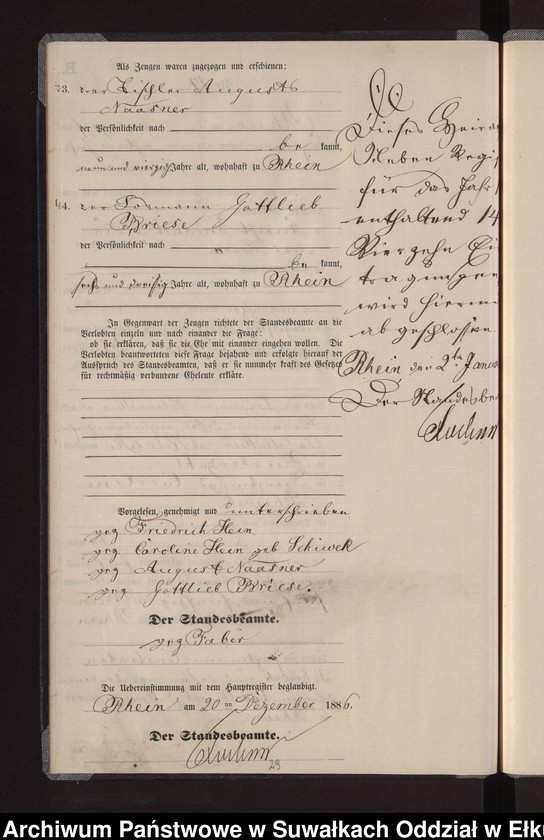 Als Zeugen waren zugezogen und erschienen:
3. der Tischler August
Naasner
der Persönlichkeit nach
be kannt,
neun und vierzig Jahre alt, wohnhaft zu Rhein
4. der Losmann Gottlieb
Briese
der Persönlichkeit nach
be kannt,
sechs und dreißig Jahre alt, wohnhaft zu Rhein
In Gegenwart der Zeugen richtete der Standesbeamte an die
Verlobten einzeln und nach einander die Frage:
ob sie erklären, daß sie die Ehe mit einander eingehen wollen. Die
Verlobten beantworteten diese Frage bejahend und erfolgte hierauf der
Ausspruch des Standesbeamten, daß er sie nunmehr kraft des Gesetzes
für rechtmäßig verbundene Eheleute erkläre.
Vorgelesen, genehmigt und unterschrieben
gez Friedrich Hein
gez Caroline Hein geb. Schiwek
gez August Naasner
gez Gottlieb Briese.
Der Standesbeamte.
gez Faber
Die Uebereinstimmung mit dem Hauptregister beglaubigt.
Rhein am 20 ten Dezember 1886.
Der Standesbeamte.
28
Dieses Heira
Neben Regi
für das Jahr
enthaltend 14
Vierzehn Ein
tragungen
wird hierm
abgeschlossen.
Rhein den 2ten Janu
Der Standesbea
Archiwum Państwowe w Suwałkach Oddział w Ełku